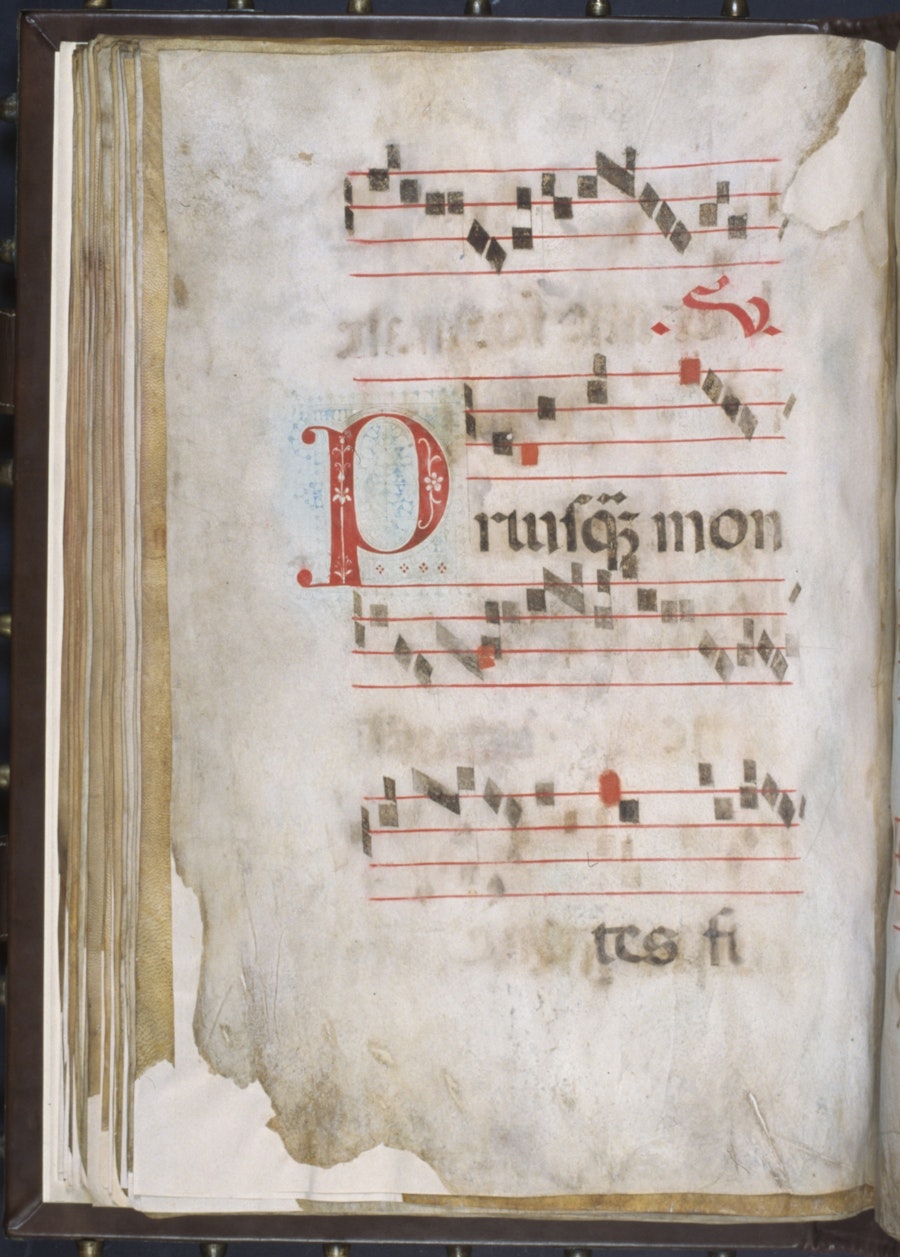 ℣
Priusq̃ mon
tes fi